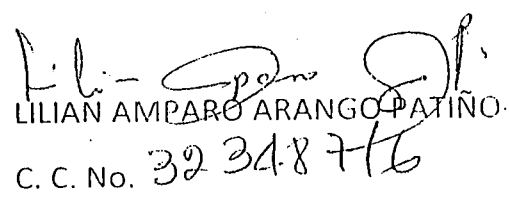 LILIAN AMPARO ARANGO PATIÑO.
C. C. No. 32 348 746